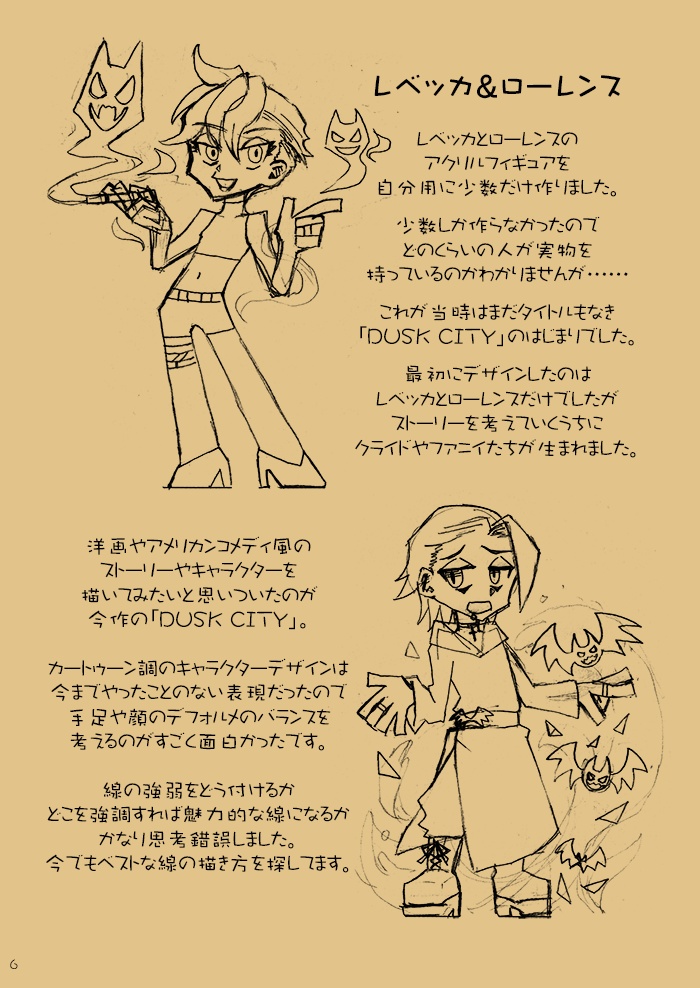 レベッカ&ローレンス
レベッカとローレンスの
アクリルフィギュアを
自分用に少数だけ作りました。
少数しか作らなかったので
どのくらいの人が実物を
持っているのかわかりませんが……
これが当時はまだタイトルもなき
「DUSK CITY」のはじまりでした。
最初にデザインしたのは
レベッカとローレンスだけでしたが
ストーリーを考えていくうちに
クライドやファニイたちが生まれました。
洋画やアメリカンコメディ風の
ストーリーやキャラクターを
描いてみたいと思いついたのが
今作の「DUSK CITY」。
カートゥーン調のキャラクターデザインは
今までやったことのない表現だったので
手足や顔のデフォルメのバランスを
考えるのがすごく面白かったです。
線の強弱をどう付けるか
どこを強調すれば魅力的な線になるか
かなり思考錯誤しました。
今でもベストな線の描き方を探してます。
6